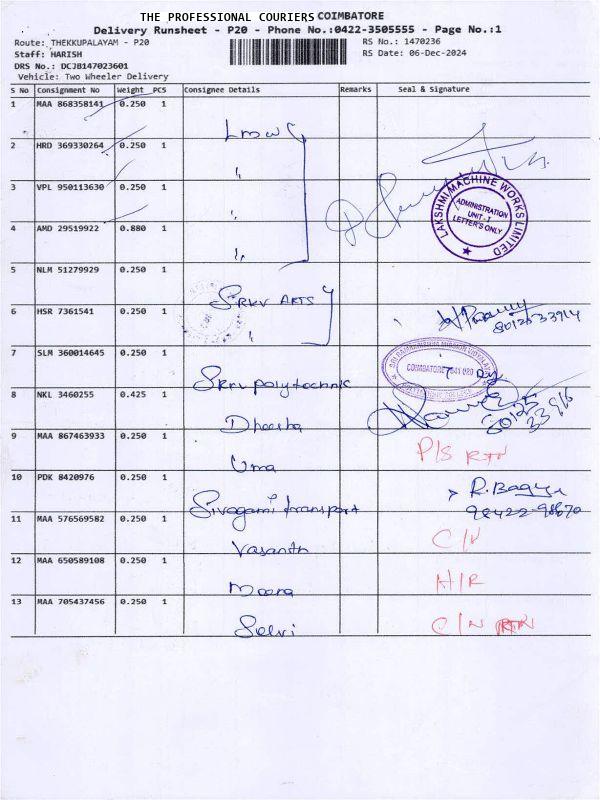 THE PROFESSIONAL COURIERS COIMBATORE
Delivery Runsheet - P20 - Phone No.:0422-3505555 - Page No.:1
Route: THEKKUPALAYAM - P20
RS No.: 1470236
Staff: HARISH
RS Date: 06-Dec-2024
DRS No.: DCJB147023601
Vehicle: Two Wheeler Delivery
S No Consignment No Weight PCS Consignee Details Remarks Seal & Signature
1 MAA 868358141 0.250 1 Lmw
2 HRD 369330264 0.250 1 "
3 VPL 950113630 0.250 1 "
4 AMD 29519922 0.880 1 "
LAKSHMI MACHINE WORKS LIMITED
ADMINISTRATION
UNIT-I
LETTER'S ONLY
5 NLM 51279929 0.250 1 SRKV ARTS
6 HSR 7361541 0.250 1 "
7 SLM 360014645 0.250 1 Skrv polytechnic
COIMBATORE - 641 020
8 NKL 3460255 0.425 1 Dheesha
9 MAA 867463933 0.250 1 Uma P/S RTN
10 PDK 8420976 0.250 1 Sivagami transport
11 MAA 576569582 0.250 1 Vasanth C/N
12 MAA 650589108 0.250 1 Meena H/R
13 MAA 705437456 0.250 1 Selvi C/N RTN